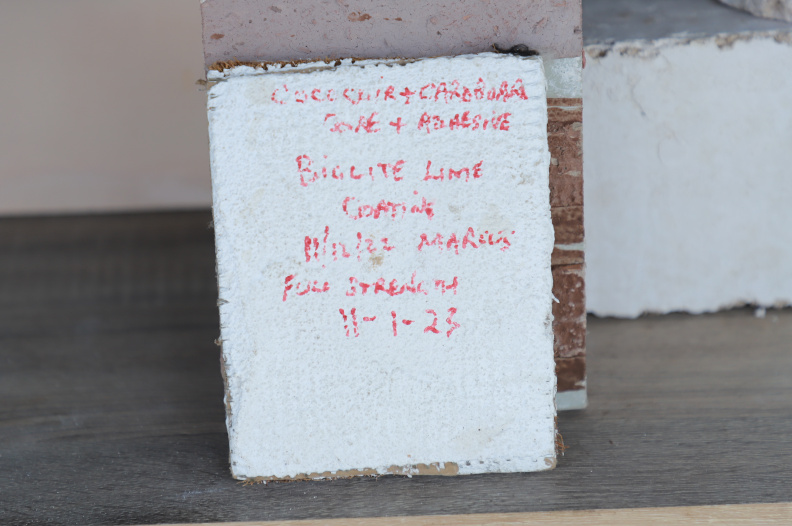 COCOCOIR + CARDBOARD
CORE + ADHESIVE
BIOLITE LIME
COATING
11/12/22 MARCUS
FULL STRENGTH
11-1-23